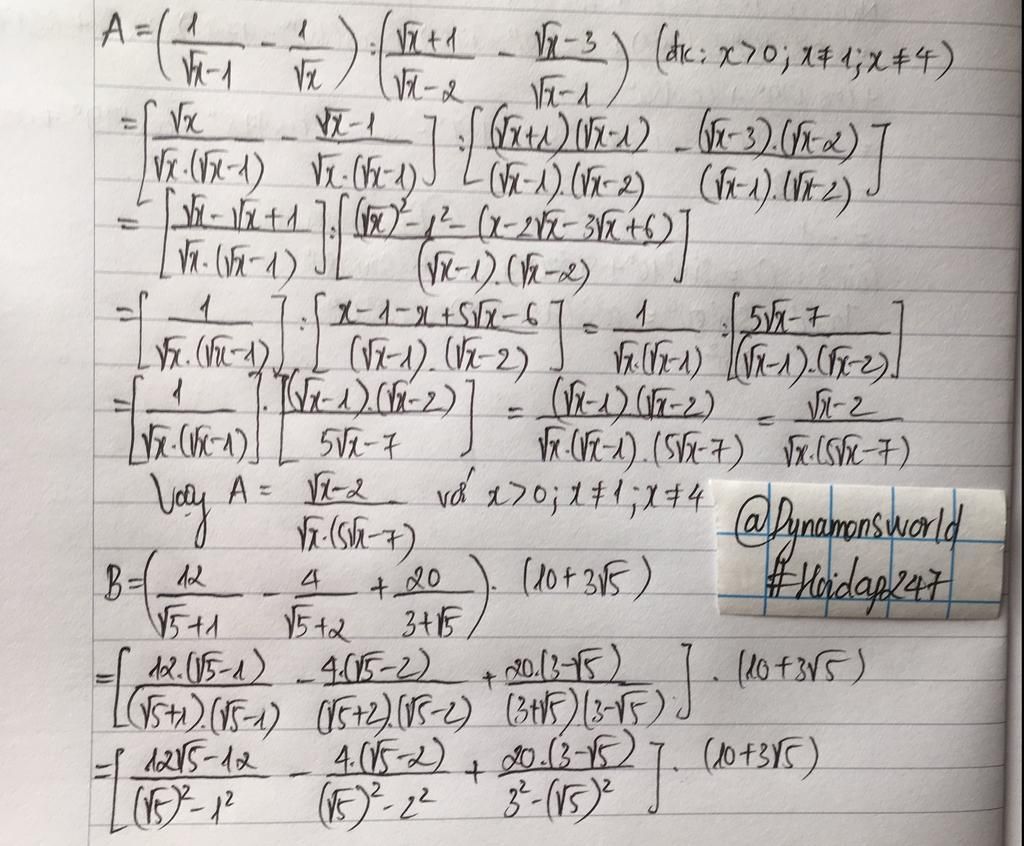 A = (1/(√x-1) - 1/√x) : ((√x+1)/(√x-2) - (√x-3)/(√x-1)) (đk: x>0; x≠1; x≠4)
= [√x/(√x.(√x-1)) - (√x-1)/(√x.(√x-1))] : [(√x+1)(√x-1)/((√x-1).(√x-2)) - (√x-3).(√x-2)/((√x-1).(√x-2))]
= [(√x-√x+1)/(√x.(√x-1))] : [((√x)²-1²-(x-2√x-3√x+6))/((√x-1).(√x-2))]
= [1/(√x.(√x-1))] : [(x-1-x+5√x-6)/((√x-1).(√x-2))] = 1/(√x.(√x-1)) : [(5√x-7)/((√x-1).(√x-2))]
= [1/(√x.(√x-1))] . [(√x-1).(√x-2)/(5√x-7)] = (√x-1)(√x-2)/(√x.(√x-1).(5√x-7)) = (√x-2)/(√x.(5√x-7))
Vậy A = (√x-2)/(√x.(5√x-7)) với x>0; x≠1; x≠4
@Dynamonsworld
#Hoidap247
B = (12/(√5+1) - 4/(√5+2) + 20/(3+√5)) . (10+3√5)
= [12.(√5-1)/((√5+1).(√5-1)) - 4.(√5-2)/((√5+2).(√5-2)) + 20.(3-√5)/((3+√5)(3-√5))] . (10+3√5)
= [(12√5-12)/((√5)²-1²) - 4.(√5-2)/((√5)²-2²) + 20.(3-√5)/(3²-(√5)²)] . (10+3√5)